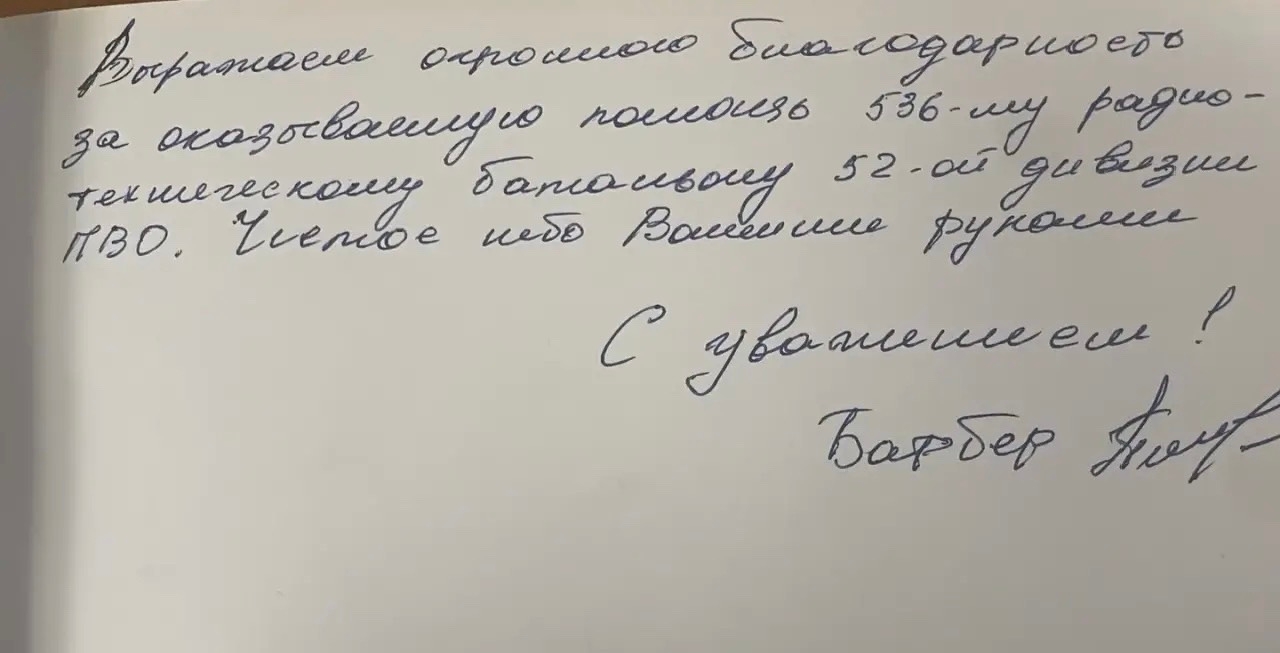 Выражаем огромного благодарность
за оказываемую помощь 536-му радио-
техническому батальону 52-ой дивизии
ПВО. Чистое небо Вашими руками
С уважением!
Барбер